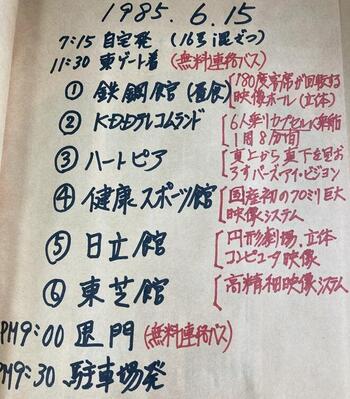 1985.6.15
7:15 自宅発 (16号混ざつ)
11:30 東ゲート着 (無料連絡バス)
① 鉄鋼館 (昼食) 180度客席が回転する
映像ホール (立体)
② KDDテレコムランド 6人乗りカプセルに乗船
1周8分間
③ ハートピア 真上から真下を見お
ろすバーズアイ・ビジョン
④ 健康スポーツ館 国産初の70ミリ巨大
映像システム
⑤ 日立館 円形劇場、立体
コンピュータ映像
⑥ 東芝館 高精細映像システム
PM9:00 退門 (無料連絡バス)
PM9:30 駐車場発